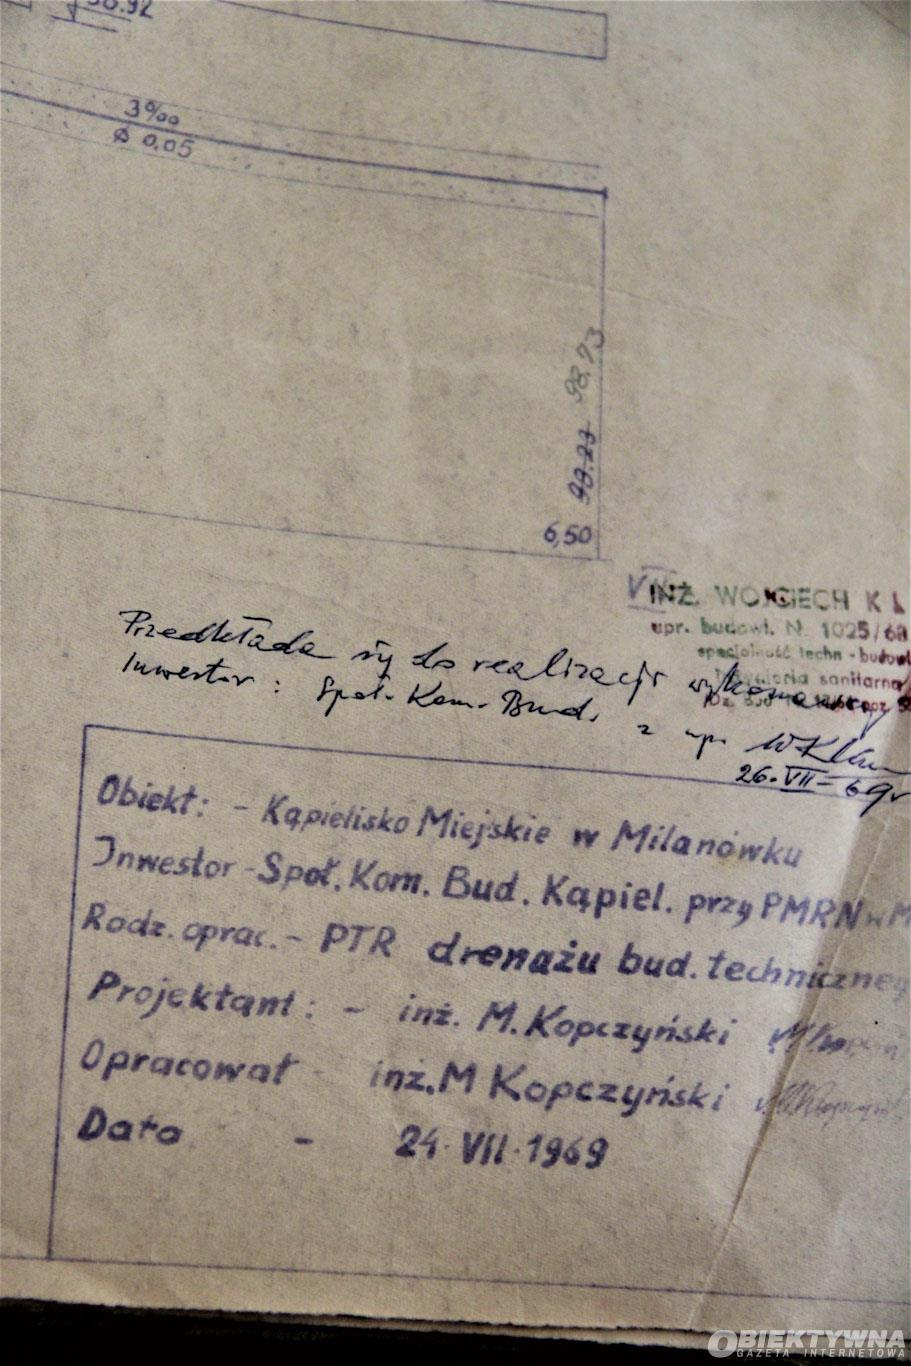 38.92
3‰
ø 0.05
98.73
98.23
6,50
INŻ. WOJCIECH KL
upr. budowl. N. 1025/68
specjalność techn-budowl
sanitarna
Przedkłada się do realizacji
Inwestor: Społ. Kom. Bud.
z up.
26.VII-69r
Obiekt: - Kąpielisko Miejskie w Milanówku
Inwestor - Społ. Kom. Bud. Kąpiel. przy PMRN w M
Rodz. oprac. - PTR drenażu bud. techniczneg
Projektant: - inż. M. Kopczyński
Opracował - inż. M Kopczyński
Data - 24.VII.1969
OBIEKTYWNA
GAZETA INTERNETOWA